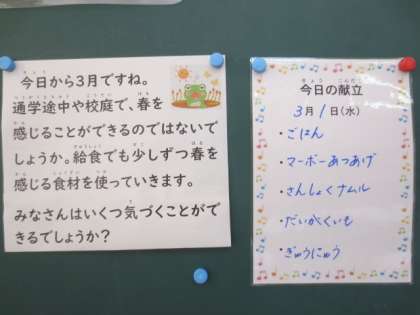 今日から3月ですね。
通学途中や校庭で、春を
感じることができるのではないで
しょうか。給食でも少しずつ春を
感じる食材を使っていきます。
みなさんはいくつ気づくことがで
きるでしょうか？
今日の献立
3月1日(水)
・ごはん
・マーボーあつあげ
・さんしょくナムル
・だいがくいも
・ぎゅうにゅう